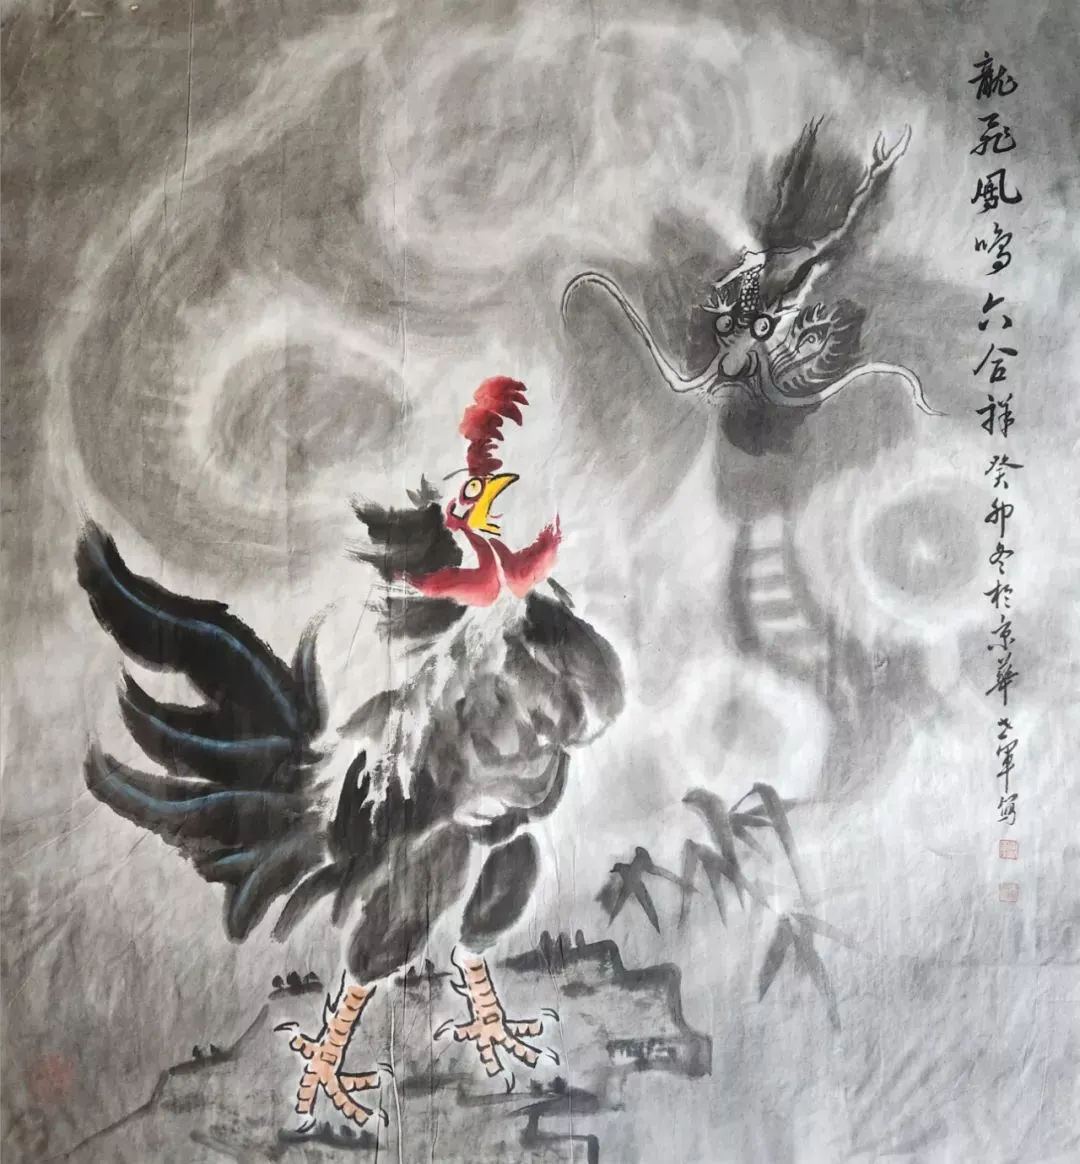 龍飛鳳鳴六合祥癸卯冬於京華世軍寫